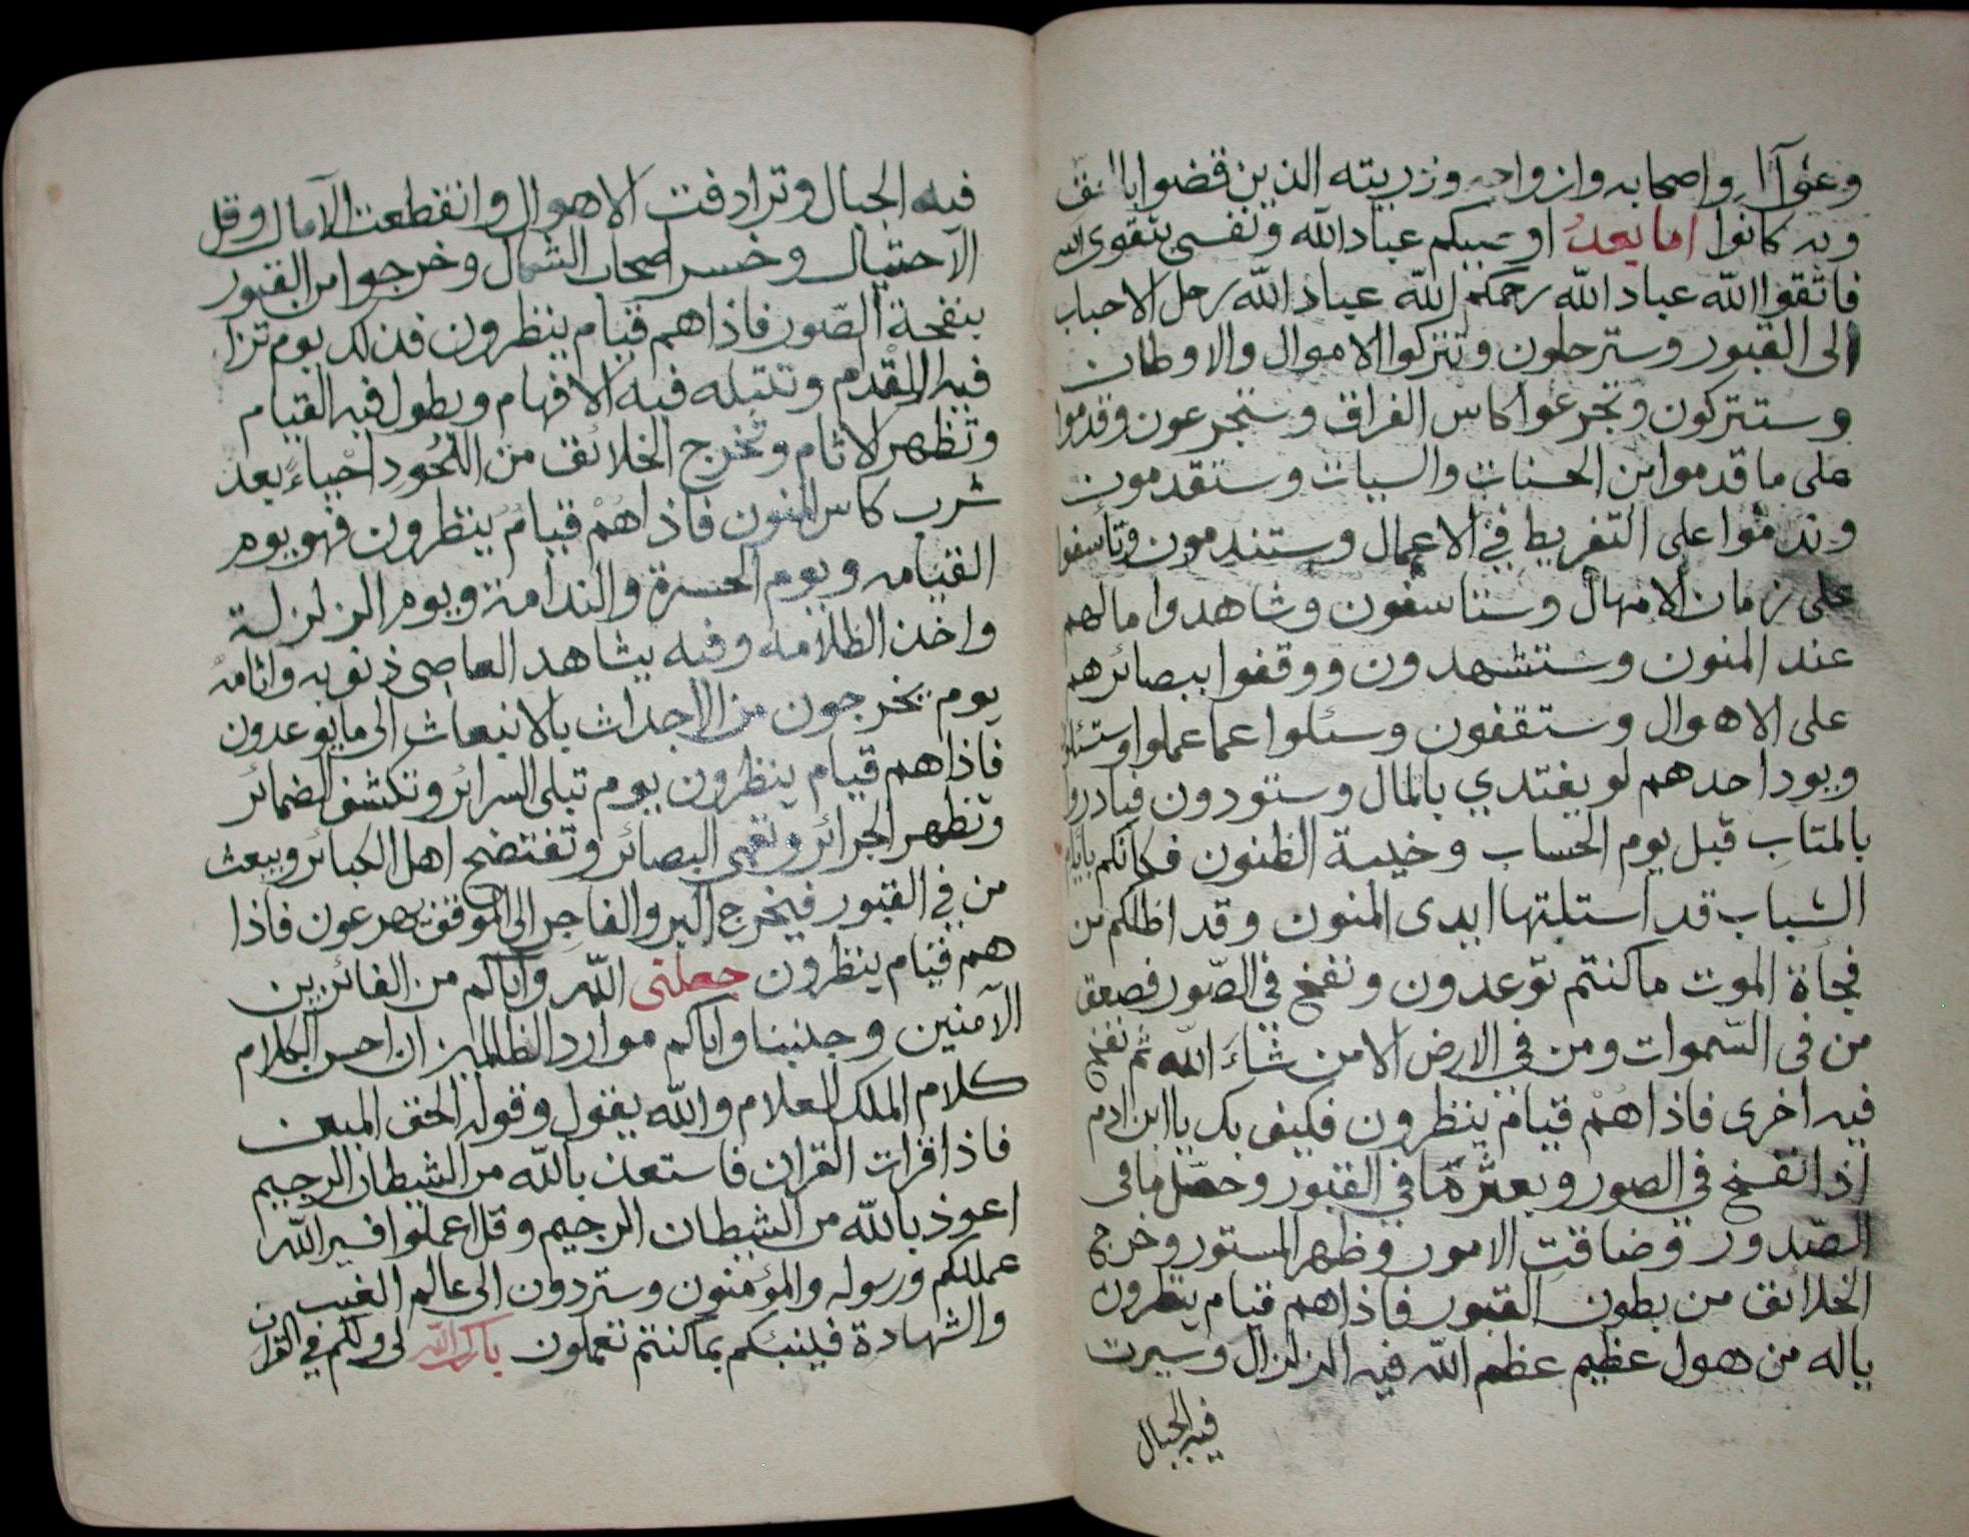 وعلى آله واصحابه وازواجه وذريته الذين قضوا بالحق
وبه كانوا اما بعد اوصيكم عباد الله ونفسى بتقوى الله
فاتقوا الله عباد الله رحمكم الله عباد الله رحل الاحباب
الى القبور وسترحلون وتتركوا الاموال والاوطان
وستتركون وتجرعوا كاس الفراق وستجرعون وقدموا
على ما قدموا من الحسنات والسيات وستقدمون
وندموا على التفريط في الاعمال وستندمون وتاسفوا
على زمان الامهال وستتاسفون وشاهدوا مالهم
عند المنون وستشهدون ووقفوا ببصائرهم
على الاهوال وستقفون وسئلوا عما عملوا وستسئلون
ويود احدهم لو يفتدي بالمال وستودون فبادروا
بالمتاب قبل يوم الحساب وخيبة الظنون فكانكم بايام
الشباب قد استلبتها ايدى المنون وقد اظلكم من
فجأة الموت ما كنتم توعدون ونفخ في الصّور فصعق
من فى السّموات ومن في الارض الا من شاءَ الله ثم نفخ
فيه اخرى فاذا هم قيام ينظرون فكيف بك يا ابن ادم
اذا نفخ في الصور وبعثر ما في القبور وحصّل ما فى
الصّدور وضاقت الامور وظهر المستور وخرج
الخلائق من بطون القبور فاذا هم قيام ينظرون
ياله من هول عظيم عظم الله فيه الزلزال وسيرت
فيه الجبال
فيه الجبال وترادفت الاهوال وانقطعت الآمال وقل
الاحتيال وخسر اصحاب الشمال وخرجوا من القبور
بنفخة الصّور فاذا هم قيام ينظرون فذلك يوم تزل
فيه القدم وتتبله فيه الافهام ويطول فيه القيام
وتظهر الاثام وتخرج الخلائق من اللحُود احياءً بعد
شرب كاس المنون فاذا هُمْ قيامٌ ينظرون فهو يوم
القيامه ويوم الحسرة والندامة ويوم الزلزلة
واخذ الظلامه وفيه يشاهد العاصى ذنوبه واثامه
يوم يخرجون من الاجداث بالانبعاث الى ما يوعدون
فاذا هم قيام ينظرون يوم تبلى السرائر وتكشف الضمائر
وتظهر الجرائر وتعمى البصائر وتفتضح اهل الكبائر ويبعث
من في القبور فيخرج البر والفاجر الى الموقف يهرعون فاذا
هم قيام ينظرون جعلنى الله واياكم من الفائزين
الآمنين وجنبنا واياكم موارد الظالمين ان احسن الكلام
كلام الملك العلام والله يقول وقوله الحق المبين
فاذا قرات القران فاستعذ بالله من الشيطان الرجيم
اعوذ بالله من الشيطان الرجيم وقل اعملوا فسيرالله
عملكم ورسوله والمؤمنون وستردون الى عالم الغيب
والشهادة فينبئكم بما كنتم تعملون بارك الله لى ولكم في القران